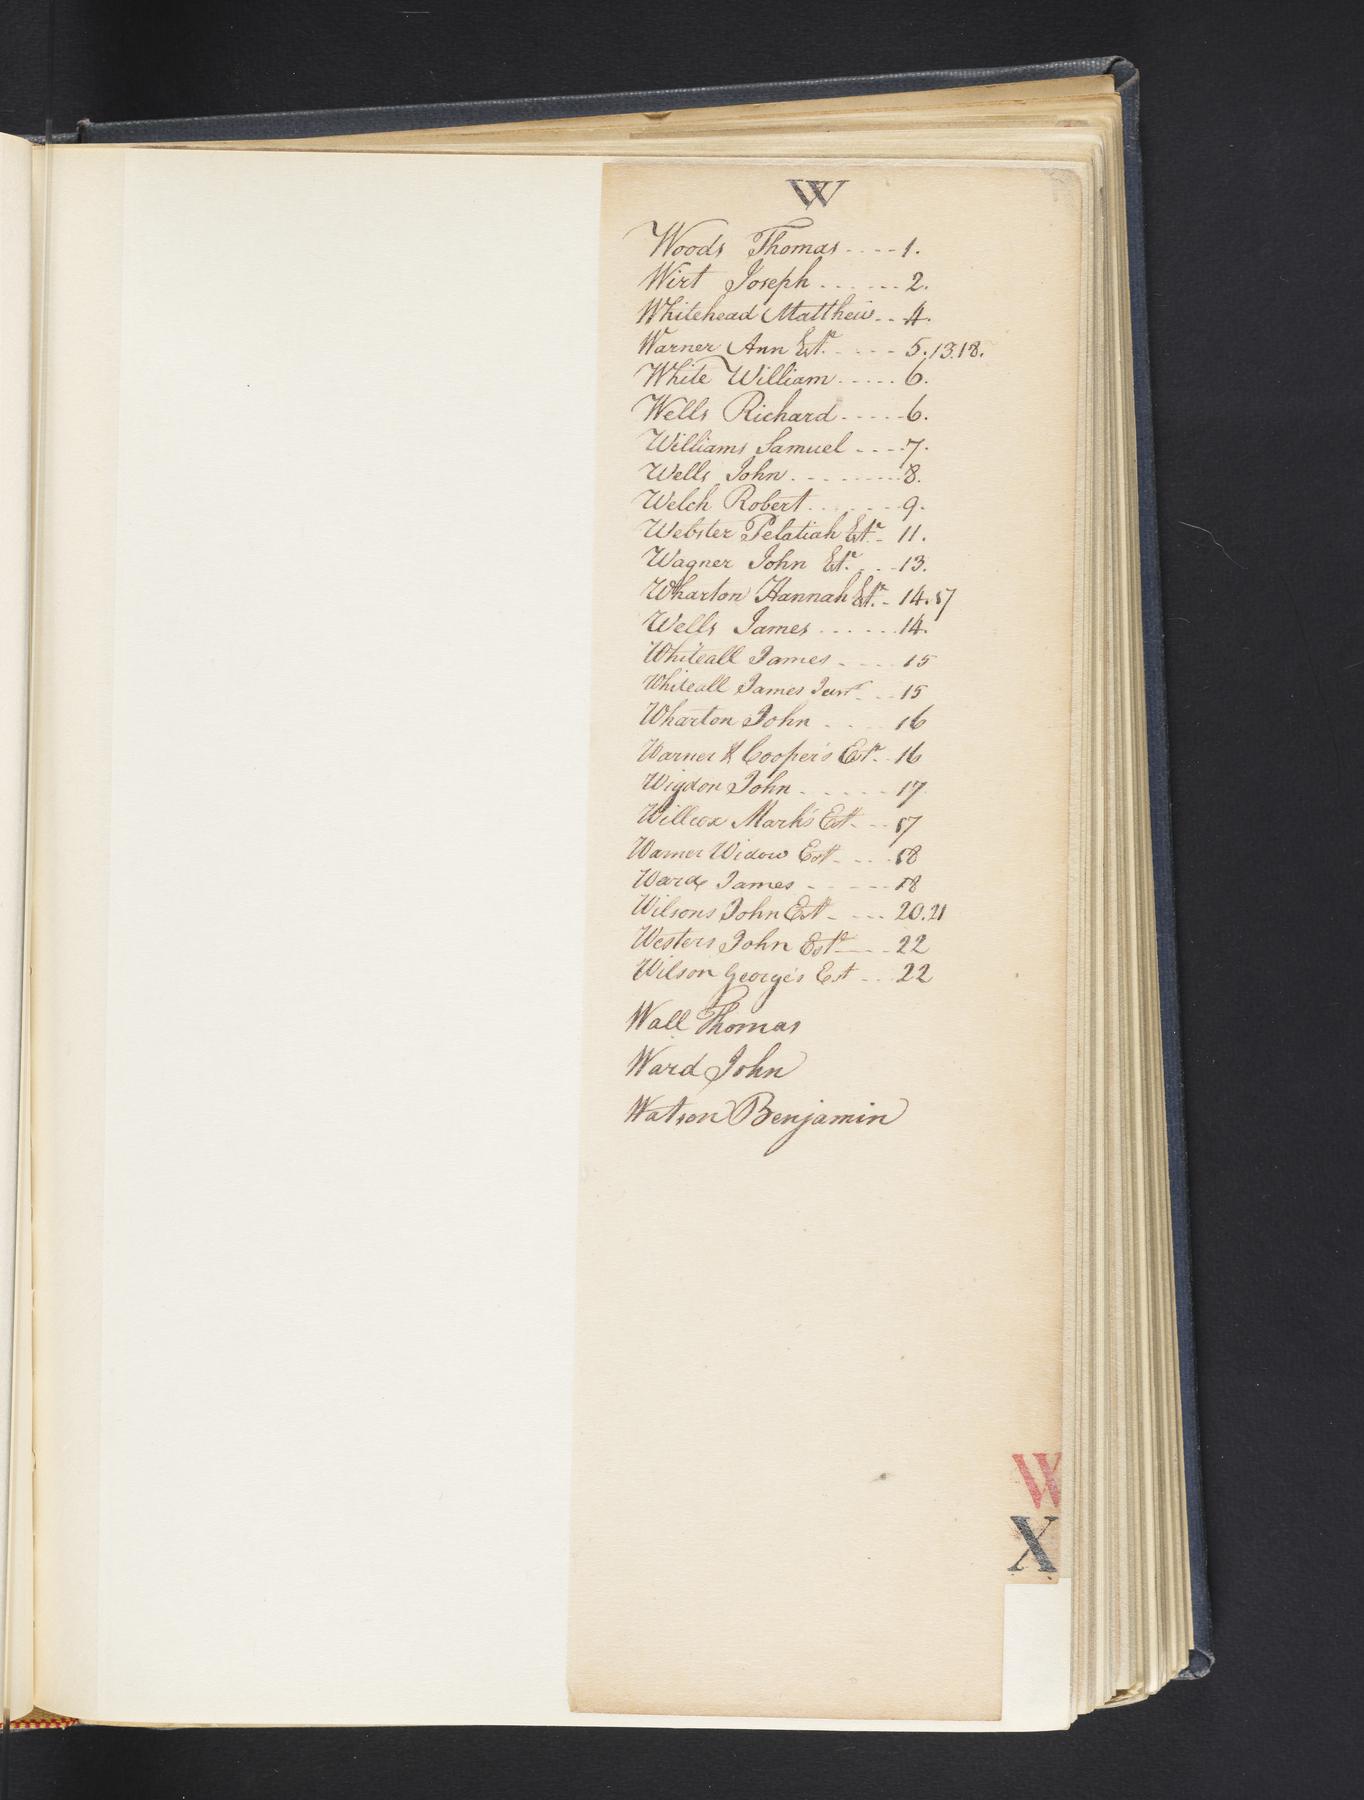 W
Woods Thomas - - - - 1.
Wirt Joseph - - - - - - 2.
Whitehead Matthew - - 4.
Warner Ann Este. - - - - 5.13.18.
White William - - - - - 6.
Wells Richard - - - - - 6.
Williams Samuel - - - - 7.
Wells John - - - - - - - - 8.
Welch Robert - - - - - - 9.
Webster Pelatiah Este. - 11.
Wagner John Este. - - - 13.
Wharton Hannah Este. - 14.17
Wells James - - - - - - 14.
Whiteall James - - - - 15
Whiteall James Junr. - - 15
Wharton John - - - - 16
Warner & Cooper's Este. - 16
Wigdon John - - - - - 17
Willcox Mark's Este - - - 17
Warner Widow Est - - - - 18
Ward James - - - - - 18
Wilsons John Este - - - - 20.21
Westers John Este - - - - 22
Wilson George's Est - - - 22
Wall Thomas
Ward John
Watson Benjamin
W
X